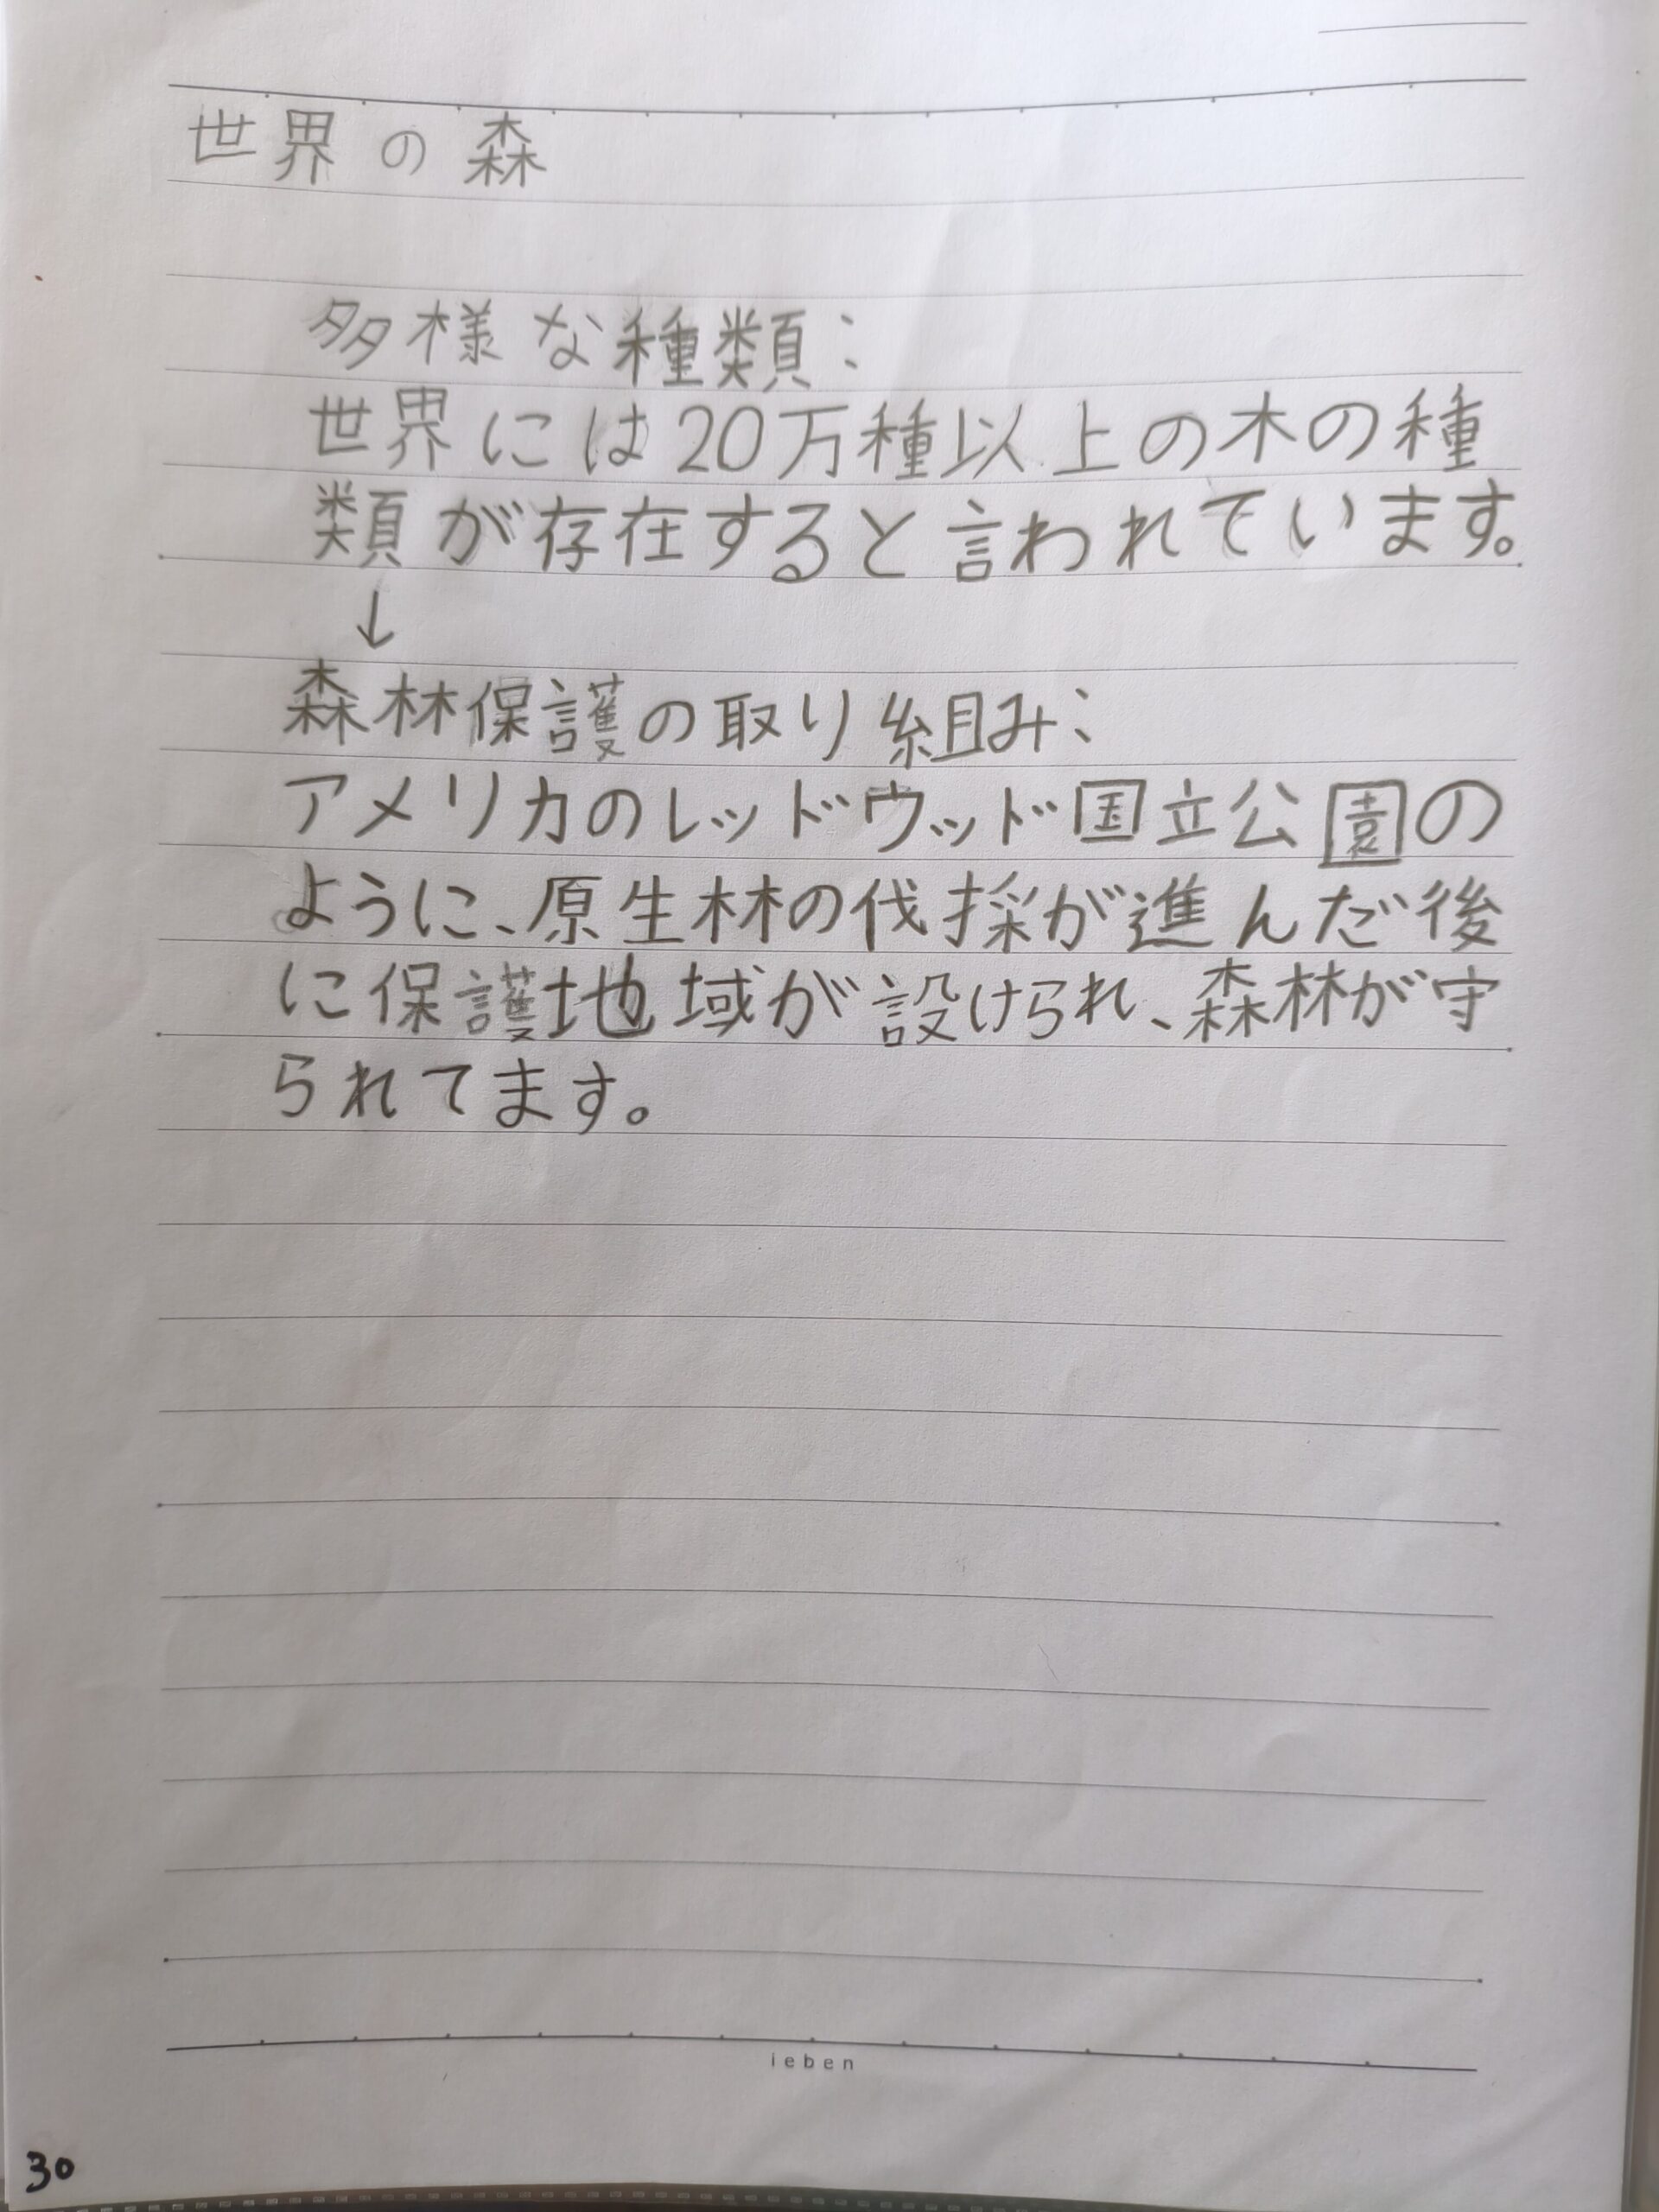 世界の森
多様な種類:
世界には20万種以上の木の種
類が存在すると言われています。
↓
森林保護の取り組み:
アメリカのレッドウッド国立公園の
ように、原生林の伐採が進んだ後
に保護地域が設けられ、森林が守
られてます。
ieben
30